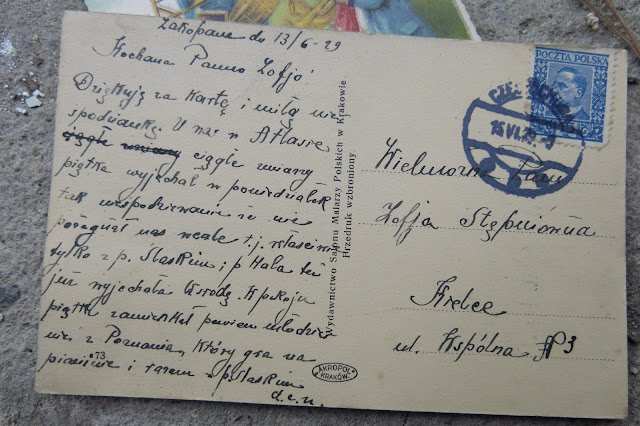 Zakopane dn 13/6-29
Kochana Panno Zofjo!
Dziękuję za kartę i miłą nie
spodziankę. U nas w Atlasie
ciągle zmiany ciągle zmiany
piątka wyjechał w poniedziałek
tak niespodziewanie że nie
pożegnał nas wcale t.j. właściwie
tylko z p. Ślaskim; p Hala też
już wyjechała w środę. W pokoju
piątki zamieszkał pewien młodzie
niec z Poznania, który gra na
pianinie i razem z p. Ślaskim
d.c.n.
73
Wydawnictwo Salonu Malarzy Polskich w Krakowie
Przedruk wzbroniony.
AKROPOL
KRAKÓW
POCZTA POLSKA
15 VI
Wielmożna Pani
Zofja Stępniówna
Kielce
ul. Wspólna № 3